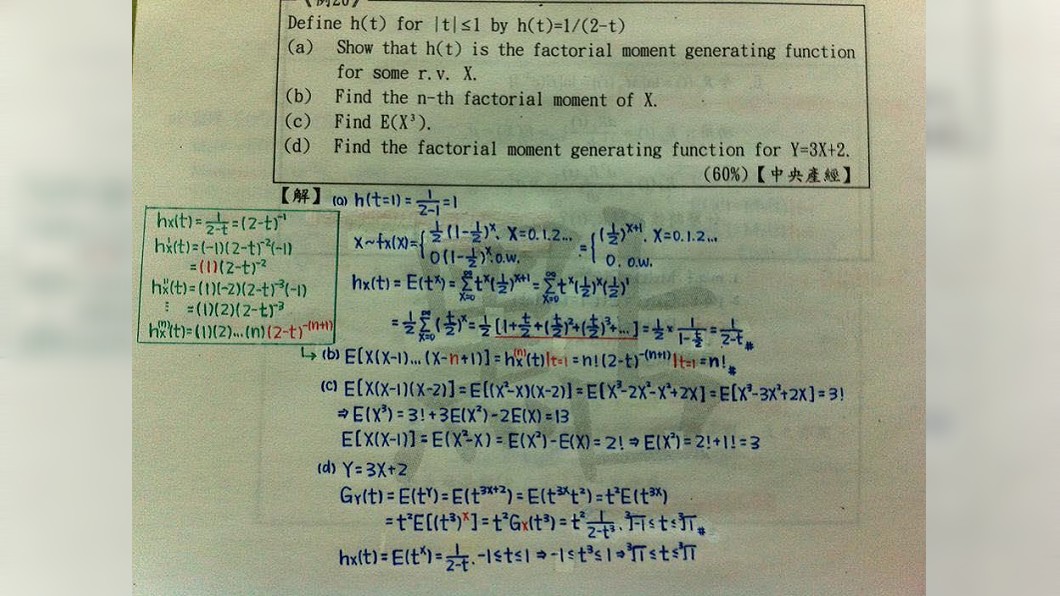 【例20】
Define h(t) for |t|≤1 by h(t)=1/(2-t)
(a) Show that h(t) is the factorial moment generating function
for some r.v. X.
(b) Find the n-th factorial moment of X.
(c) Find E(X³).
(d) Find the factorial moment generating function for Y=3X+2.
(60%)【中央產經】
【解】(a) h(t=1) = 1/(2-1) = 1
X~fx(x)={ 1/2(1-1/2)^x, X=0.1.2... = { (1/2)^(x+1), X=0.1.2...
0(1-1/2)^x, o.w. 0. o.w.
hx(t) = E(t^x) = Σ_{x=0}^∞ t^x(1/2)^(x+1) = Σ_{x=0}^∞ t^x(1/2)^x(1/2)^1
= 1/2 Σ_{x=0}^∞ (t/2)^x = 1/2 [1+t/2+(t/2)²+(t/2)³+...] = 1/2 × 1/(1-t/2) = 1/(2-t) #
hx(t) = 1/(2-t) = (2-t)^-1
hx'(t) = (-1)(2-t)^-2(-1)
= (1)(2-t)^-2
hx''(t) = (1)(-2)(2-t)^-3(-1)
⋮ = (1)(2)(2-t)^-3
hx^(n)(t) = (1)(2)...(n)(2-t)^-(n+1)
↳ (b) E[X(X-1)...(X-n+1)] = hx^(n)(t)|t=1 = n!(2-t)^-(n+1)|t=1 = n! #
(c) E[X(X-1)(X-2)] = E[(X²-X)(X-2)] = E[X³-2X²-X²+2X] = E[X³-3X²+2X] = 3!
⇒ E(X³) = 3!+3E(X²)-2E(X) = 13
E[X(X-1)] = E(X²-X) = E(X²)-E(X) = 2! ⇒ E(X²) = 2!+1! = 3
(d) Y=3X+2
GY(t) = E(t^Y) = E(t^(3X+2)) = E(t^(3X)t²) = t²E(t^(3X))
= t²E[(t³)^X] = t²Gx(t³) = t² 1/(2-t³), ³√-1 ≤ t ≤ ³√1 #
hx(t) = E(t^x) = 1/(2-t), -1≤t≤1 ⇒ -1≤t³≤1 ⇒ ³√1 ≤ t ≤ ³√1